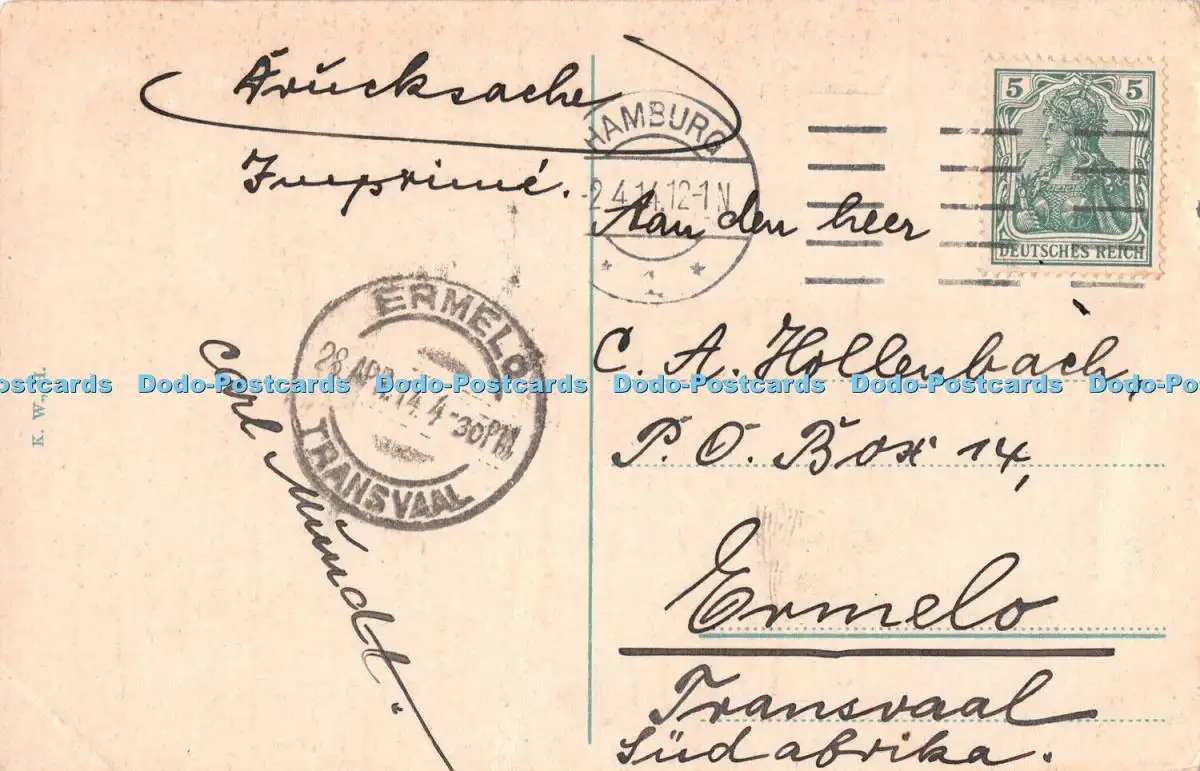 Drucksache
Imprimé.
HAMBURG
2.4.14.12-1N
* 1 *
5 5
DEUTSCHES REICH
Aan den heer
C. A. Hollenbach,
P. O. Box 14,
Ermelo
Transvaal
Südafrika.
ERMELO
28 APR 14. 4-30PM
TRANSVAAL
Carl Mündt.
K. W.
Dodo-Postcards Dodo-Postcards Dodo-Postcards Dodo-Postcards Dodo-Postcards